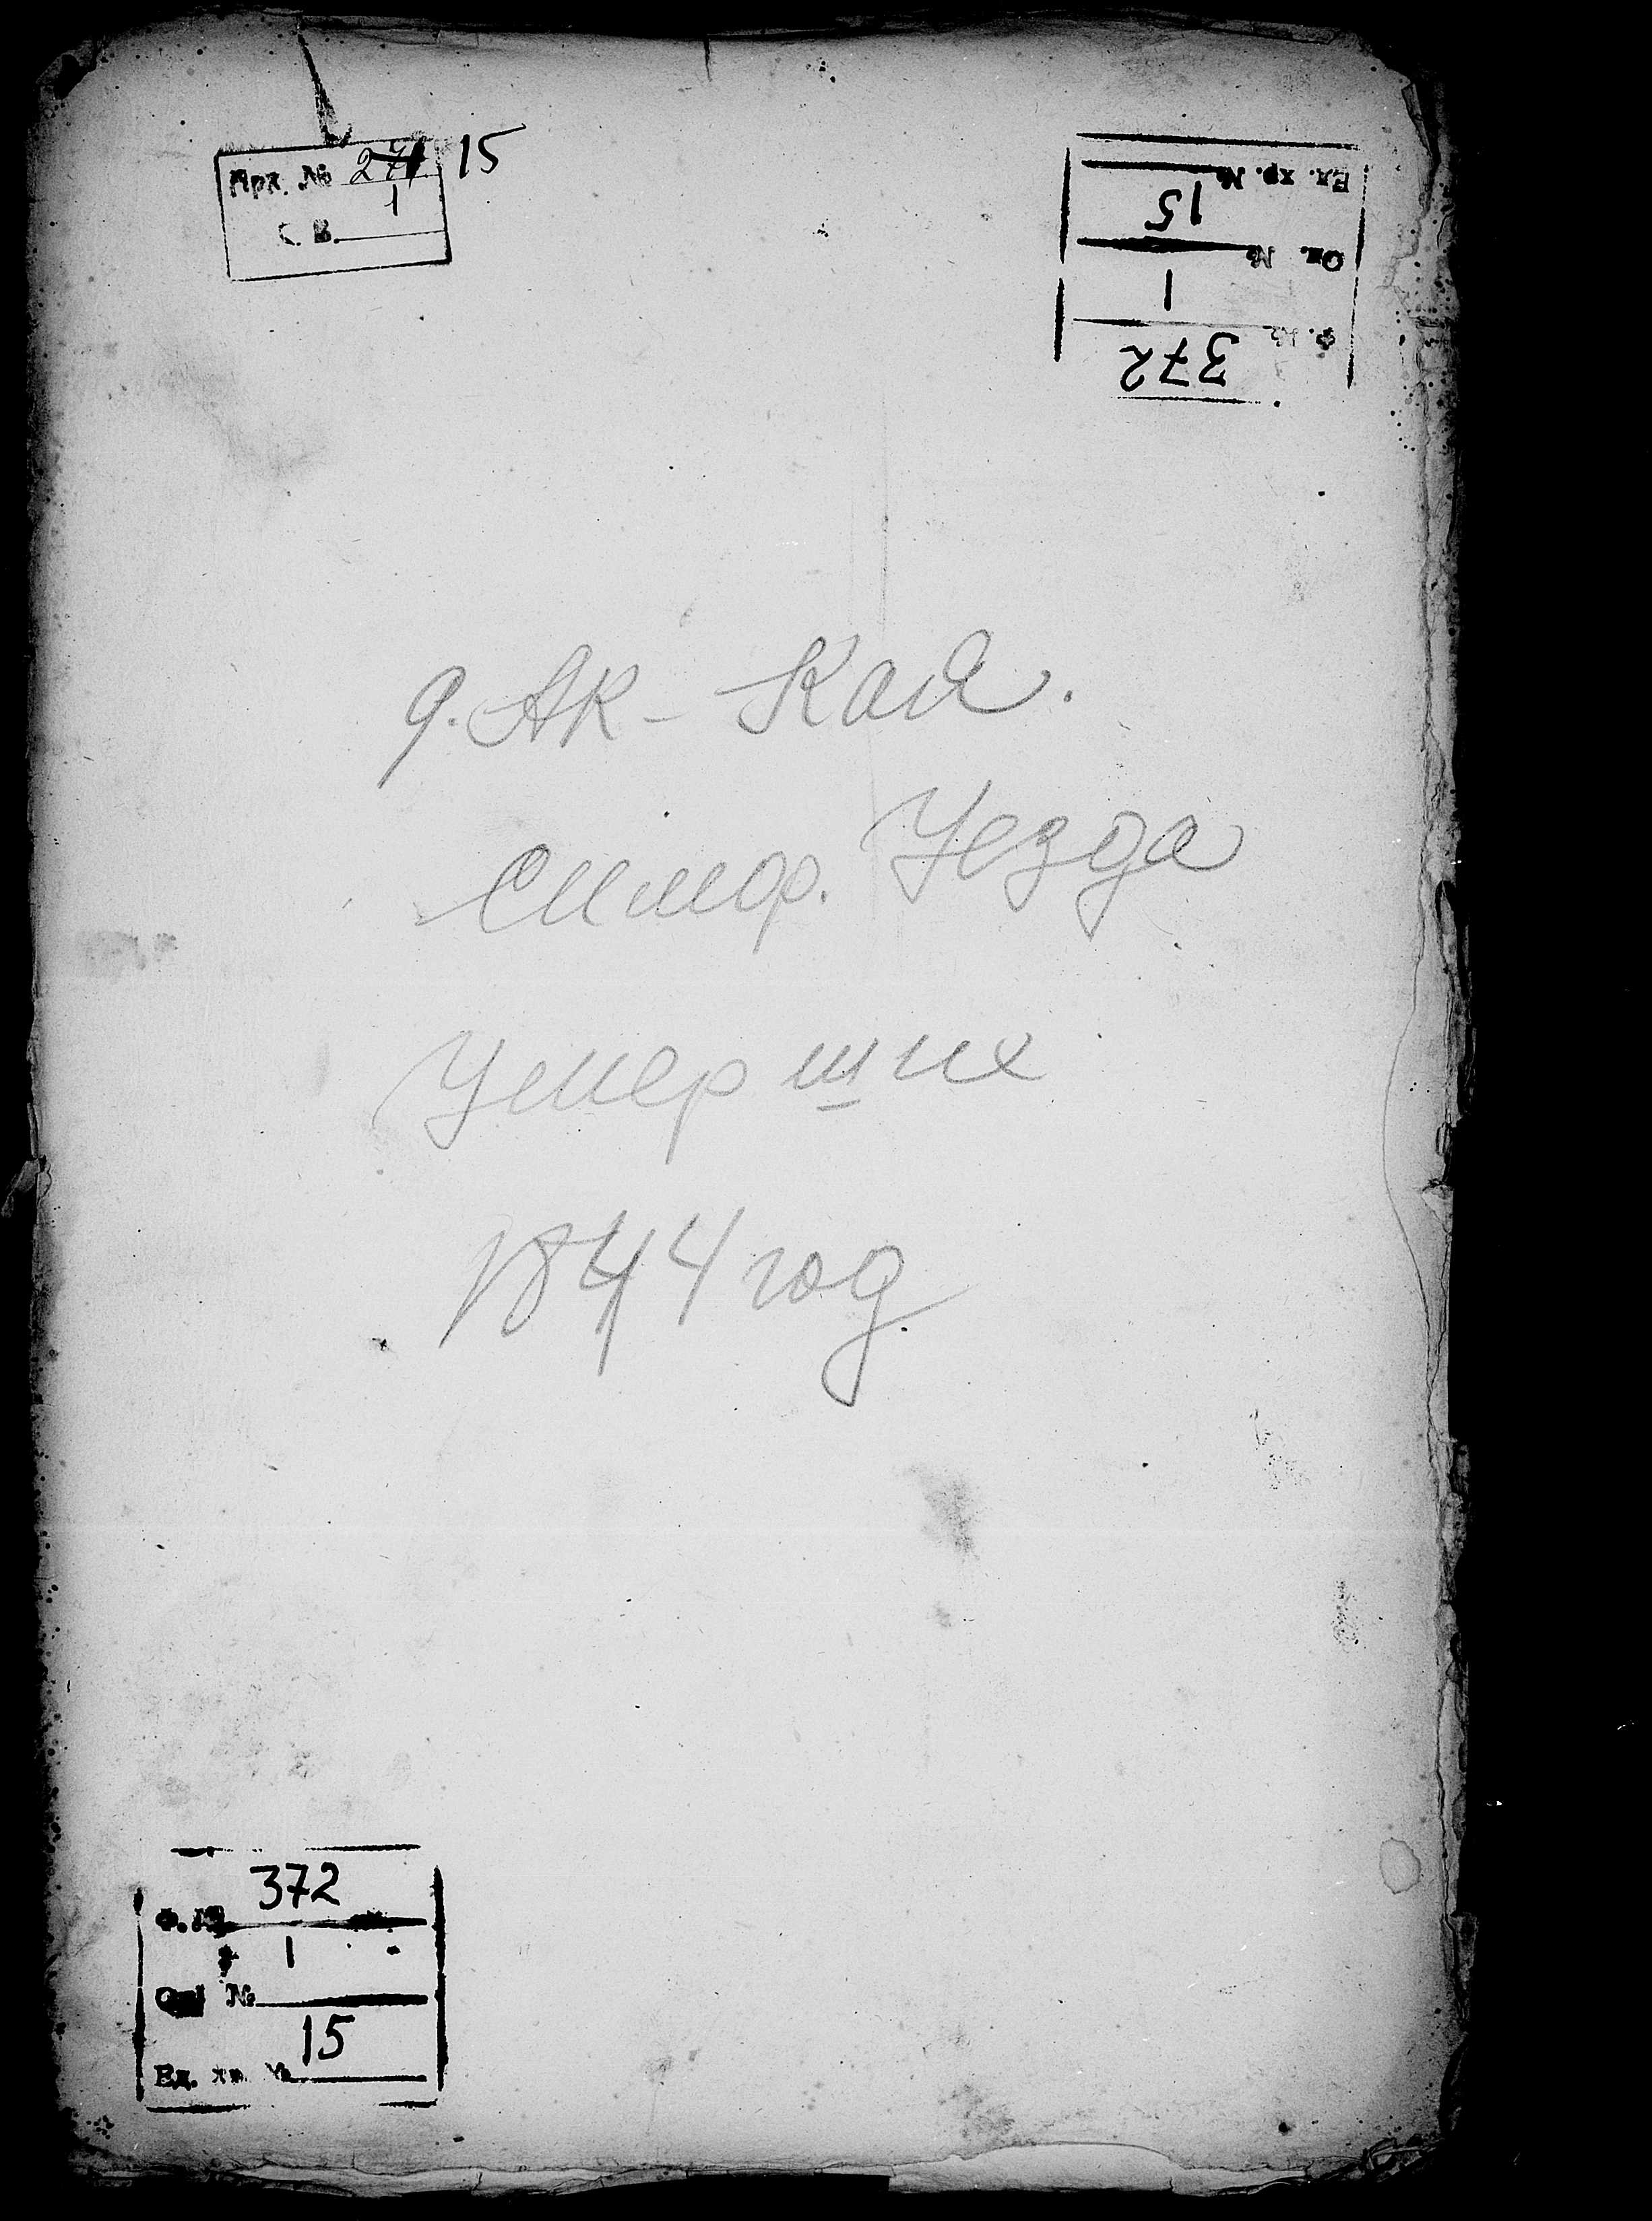 Арх. № 271 15
1
С. В.
Ед. хр. № 15
Оп. № 1
Ф. № 372
д. Ак-Кая.
Симфр. Уезда
Умерших
1844 год
372
Ф. №
1
Оп. №
15
Ед. хр. №